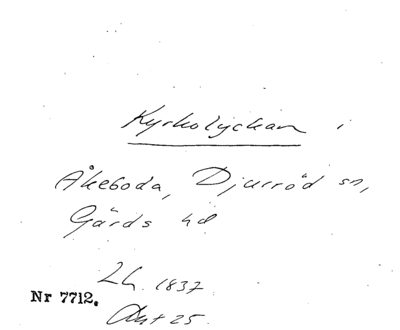 Kyrkolyckan i
Åkeboda, Djurröd sn,
Gärds hd
Lh. 1837
Nr 7712.
Akt 25.